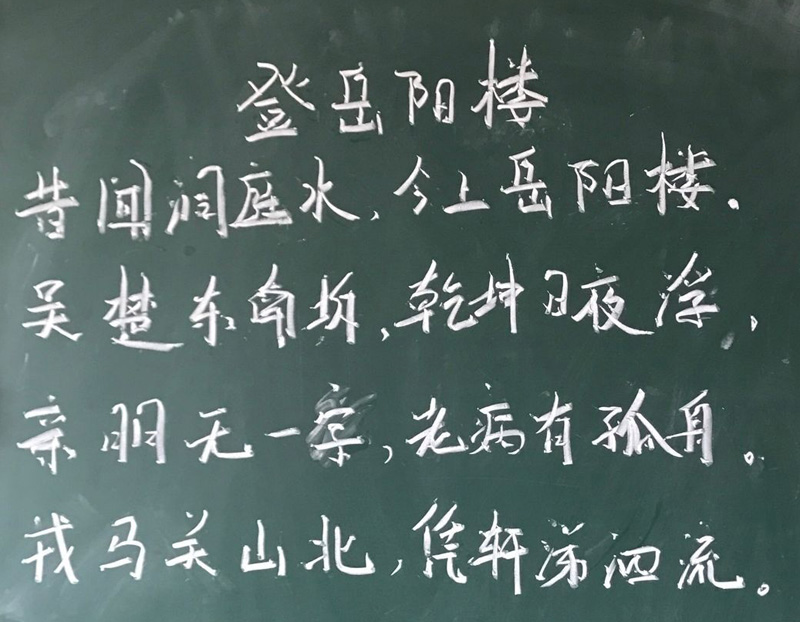 登岳阳楼
昔闻洞庭水,今上岳阳楼.
吴楚东南坼,乾坤日夜浮,
亲朋无一字,老病有孤舟。
戎马关山北,凭轩涕泗流。